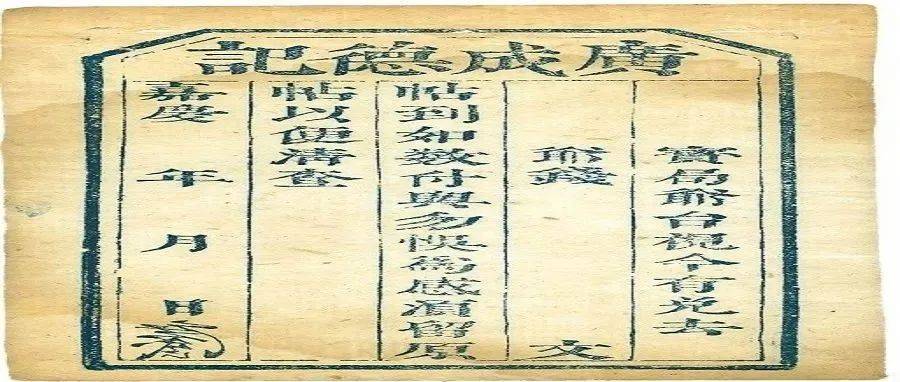 廣成德記
寶局台視今有兌去
錢 文
帖到如數付與勿悞為感須留原
帖以便清查
嘉慶 年 月 日